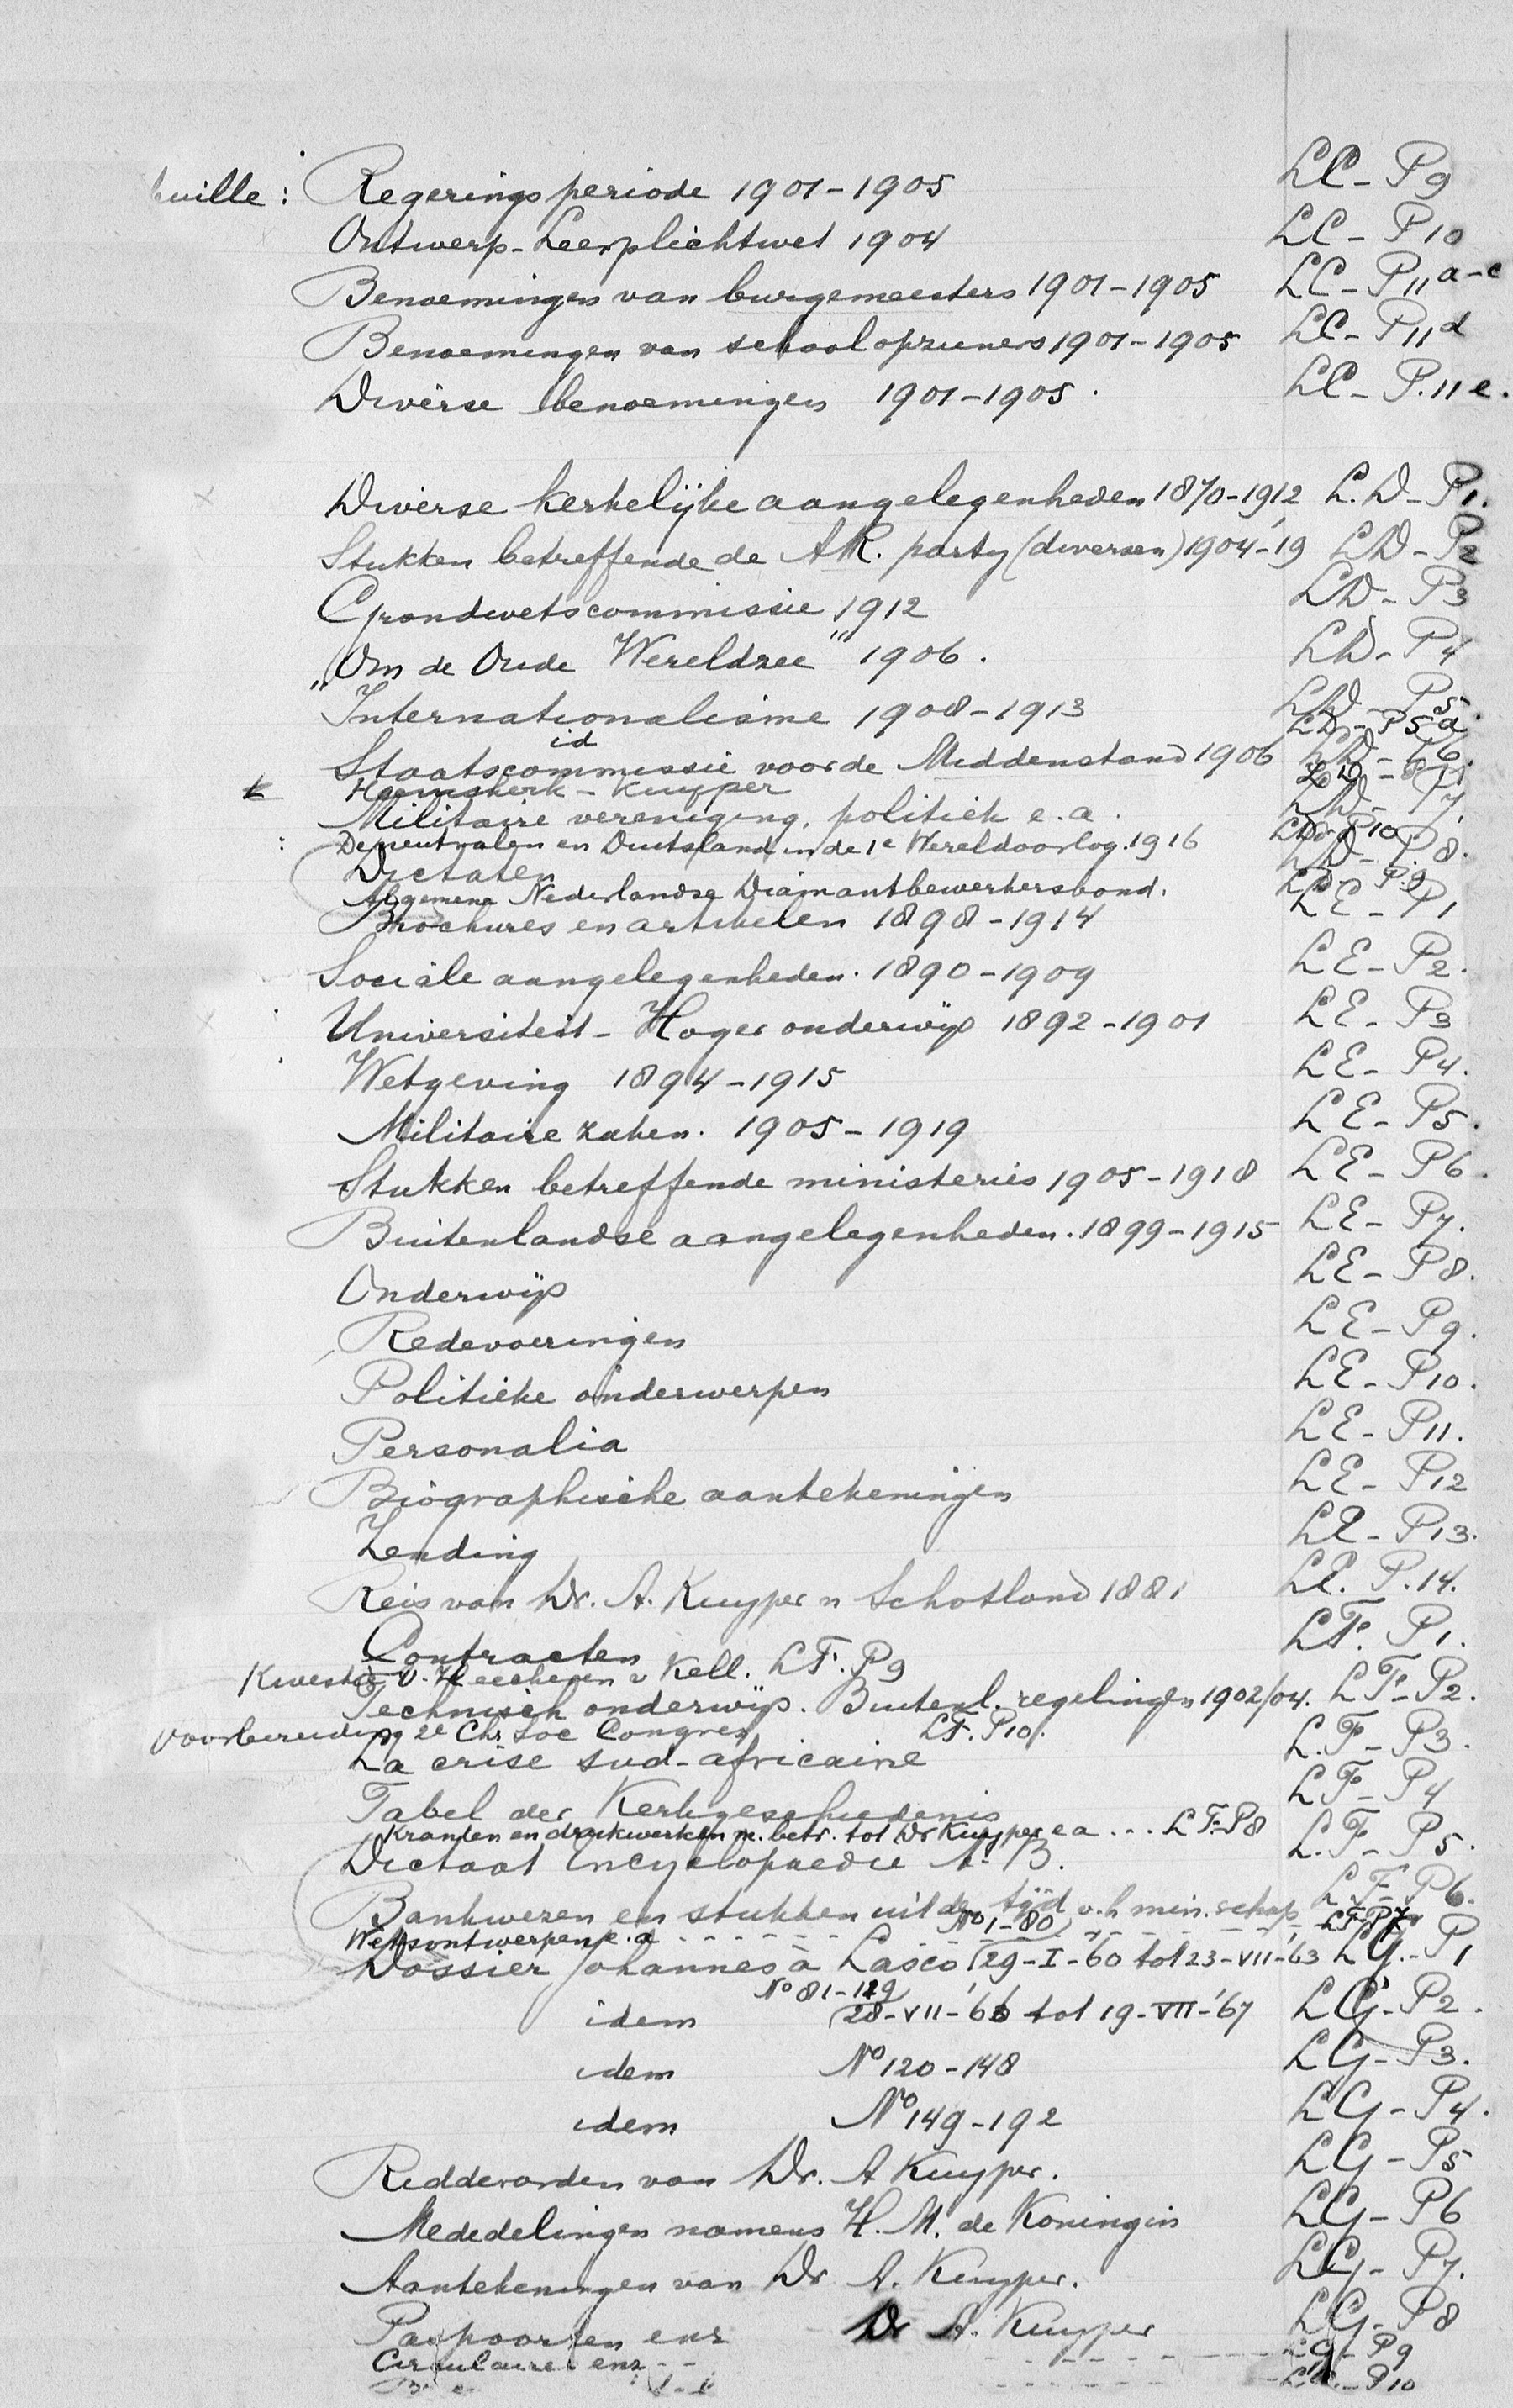 Regeringsperiode 1901-1905 LC-P9
Ontwerp-Leerplichtwet 1904 LC-P10
Benoemingen van burgemeesters 1901-1905 LC-P11 a-c
Benoemingen van schoolopzieners 1901-1905 LC-P11d
Diverse benoemingen 1901-1905. LC-P.11e.
Diverse kerkelijke aangelegenheden 1870-1912 L.D-P1.
Stukken betreffende de A.R. party (diversen) 1904-'19 LD-P2
Grondwetscommissie 1912 LD-P3
"Om de Oude Wereldzee" 1906. LD-P4
"Internationalisme 1908-1913 LD-P5.
id LD-P5a
Staatscommissie voor de Middenstand 1906 LD-P6.
Heemskerk-Kuyper LD-P11
Militaire vereniging, politiek e.a. LD-P7
De neutralen en Duitsland in de 1e Wereldoorlog. 1916 LD-P10
Dictaten LD-P.8.
Algemene Nederlandse Diamantbewerkersbond. LD-P.9
Brochures en artikelen 1898-1914 LE-P1
Sociale aangelegenheden. 1890-1909 LE-P2.
Universiteit-Hoger onderwijs 1892-1901 LE-P3
Wetgeving 1894-1915 LE-P4.
Militaire zaken. 1905-1919 LE-P5.
Stukken betreffende ministeries 1905-1918 LE-P6.
Buitenlandse aangelegenheden. 1899-1915 LE-P7.
Onderwijs LE-P8.
Redevoeringen LE-P9.
Politieke onderwerpen LE-P10.
Personalia LE-P11.
Biographische aantekeningen LE-P12
Zending LE-P13.
Reis van Dr. A. Kuyper n Schotland 1881 LE.P.14.
Contracten LF.P1.
Kwestie v. Heeckeren v Kell. LF.P9
Technisch onderwijs. Buitenl. regelingen 1902/04. LF-P2.
Voorbereiding 2e Chr Soc Congres LF.P10.
La crise sud-africaine L.F-P3.
Tabel der Kerkgeschiedenis LF-P4
Kranten en drukwerken m. betr. tot Dr Kuyper ea ... LF-P8
Dictaat Encyclopaedie A-B. L.F-P5.
Bankwezen en stukken uit de tijd v.h min.schap LF-P6.
Wetsontwerpen e.a - - - - - - LF-P7
No 1-80
Dossier Johannes à Lasco (29-I-'60 tot 23-VII-'63 LG-P1
No 81-119
idem (28-VII-'63 tot 19-VII-'67 LG-P2.
idem No 120-148 LG-P3.
idem No 149-192 LG-P4.
Ridderorden van Dr. A Kuyper. LG-P5
Mededelingen namens H.M. de Koningin LG-P6
Aantekeningen van Dr A. Kuyper. LG-P7.
Paspoorten enz Dr A. Kuyper LG-P8
Circulaires enz - - - - - - - LG-P9
LG-P10